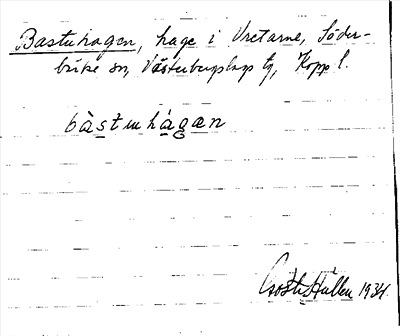 Bastuhagen, hage i Vretarne, Söder-
bärke sn, Västerbergslags tg, Kopp l.
bàstuhágan
Gösta Hallén 1934.